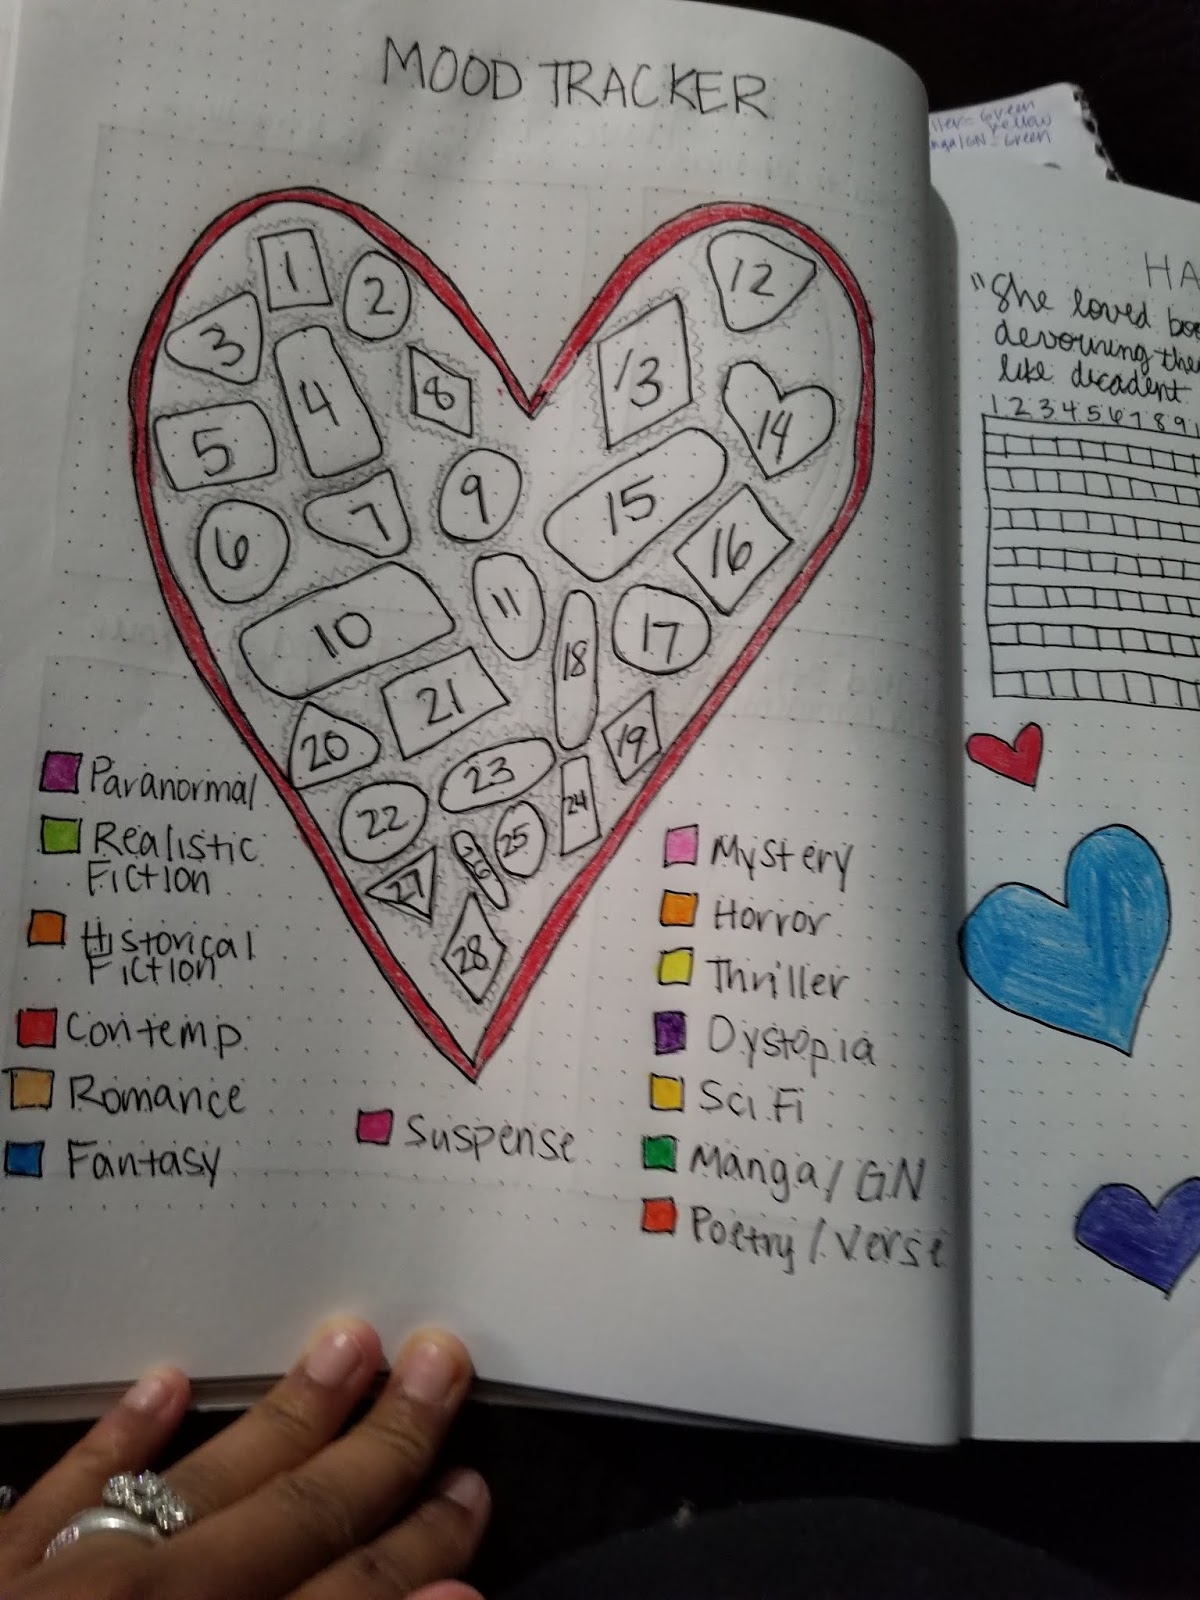 MOOD TRACKER
1
2
3
4
5
6
7
8
9
10
11
12
13
14
15
16
17
18
19
20
21
22
23
24
25
26
27
28
Paranormal
Realistic
Fiction
Historical
Fiction
Contemp
Romance
Fantasy
Suspense
Mystery
Horror
Thriller
Dystopia
Sci Fi
Manga / GN
Poetry / Verse
Green
Yellow
Green
HA
"She loved
devouring
like decadent
1 2 3 4 5 6 7 8 9